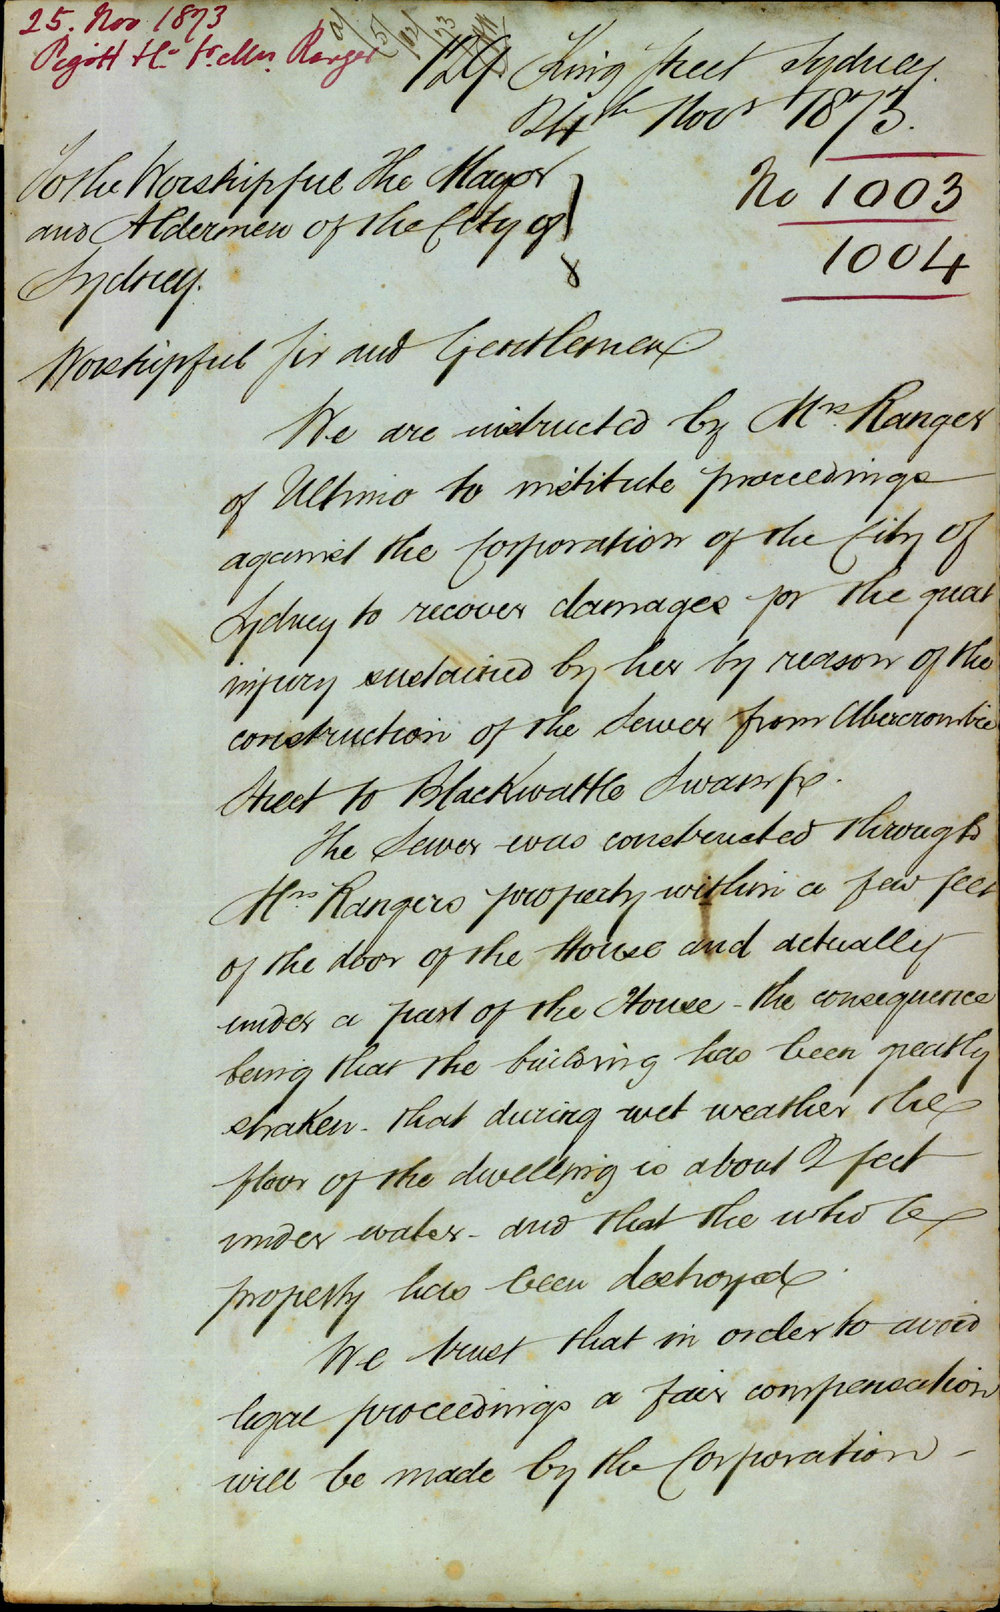 25. Nov 1873
Pigott &c. for Mrs. Ranger
124 King Street Sydney.
24th Novr 1873.
No 1003
1004
To the Worshipful The Mayor
and Aldermen of the City of
Sydney.
Worshipful Sir and Gentlemen
We are instructed by Mrs. Ranger
of Ultimo to institute proceedings
against the Corporation of the City of
Sydney to recover damages for the great
injury sustained by her by reason of the
construction of the Sewer from Abercrombie
Street to Blackwattle Swamp.
The Sewer was constructed through
Mrs Rangers property within a few feet
of the door of the House and actually
under a part of the House - the consequence
being that the building has been greatly
shaken - that during wet weather the
floor of the dwelling is about 2 feet
under water - and that the whole
property has been destroyed.
We trust that in order to avoid
legal proceedings a fair compensation
will be made by the Corporation -